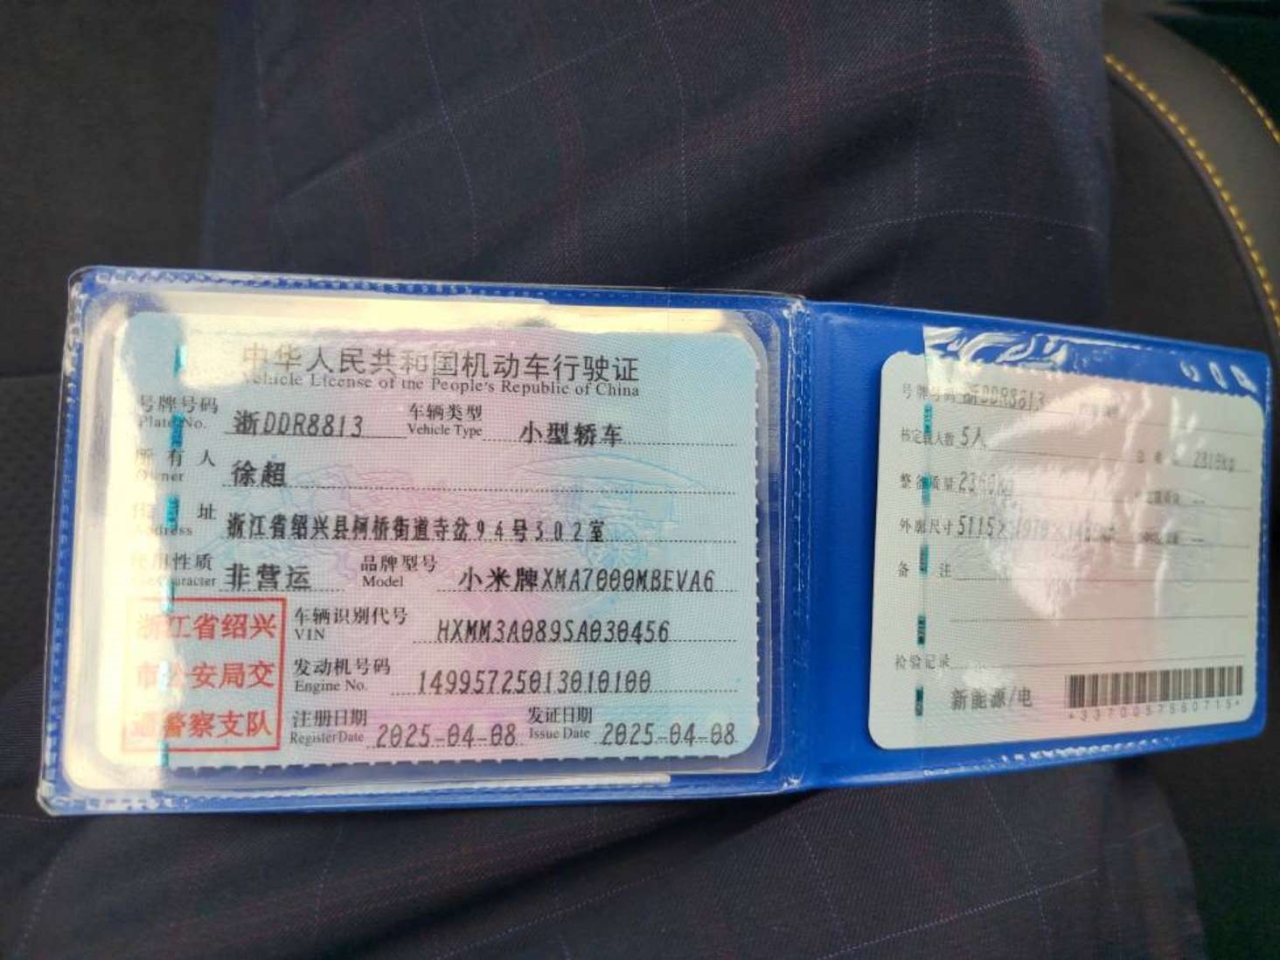 中华人民共和国机动车行驶证
Vehicle License of the People's Republic of China
号牌号码 浙DDR8813 车辆类型 小型轿车
Plate No. Vehicle Type
所有人 徐超
Owner
住址 浙江省绍兴县柯桥街道寺岔94号302室
Address
使用性质 非营运 品牌型号 小米牌XMA7000MBEVA6
Use Character Model
浙江省绍兴
市公安局交
通警察支队
车辆识别代号 HXMM3A089SA030456
VIN
发动机号码 14995725013010100
Engine No.
注册日期 2025-04-08 发证日期 2025-04-08
Register Date Issue Date
号牌号码 浙DDR8813
核定载人数 5人
整备质量
外廓尺寸 5115×
备注
检验记录
新能源/电